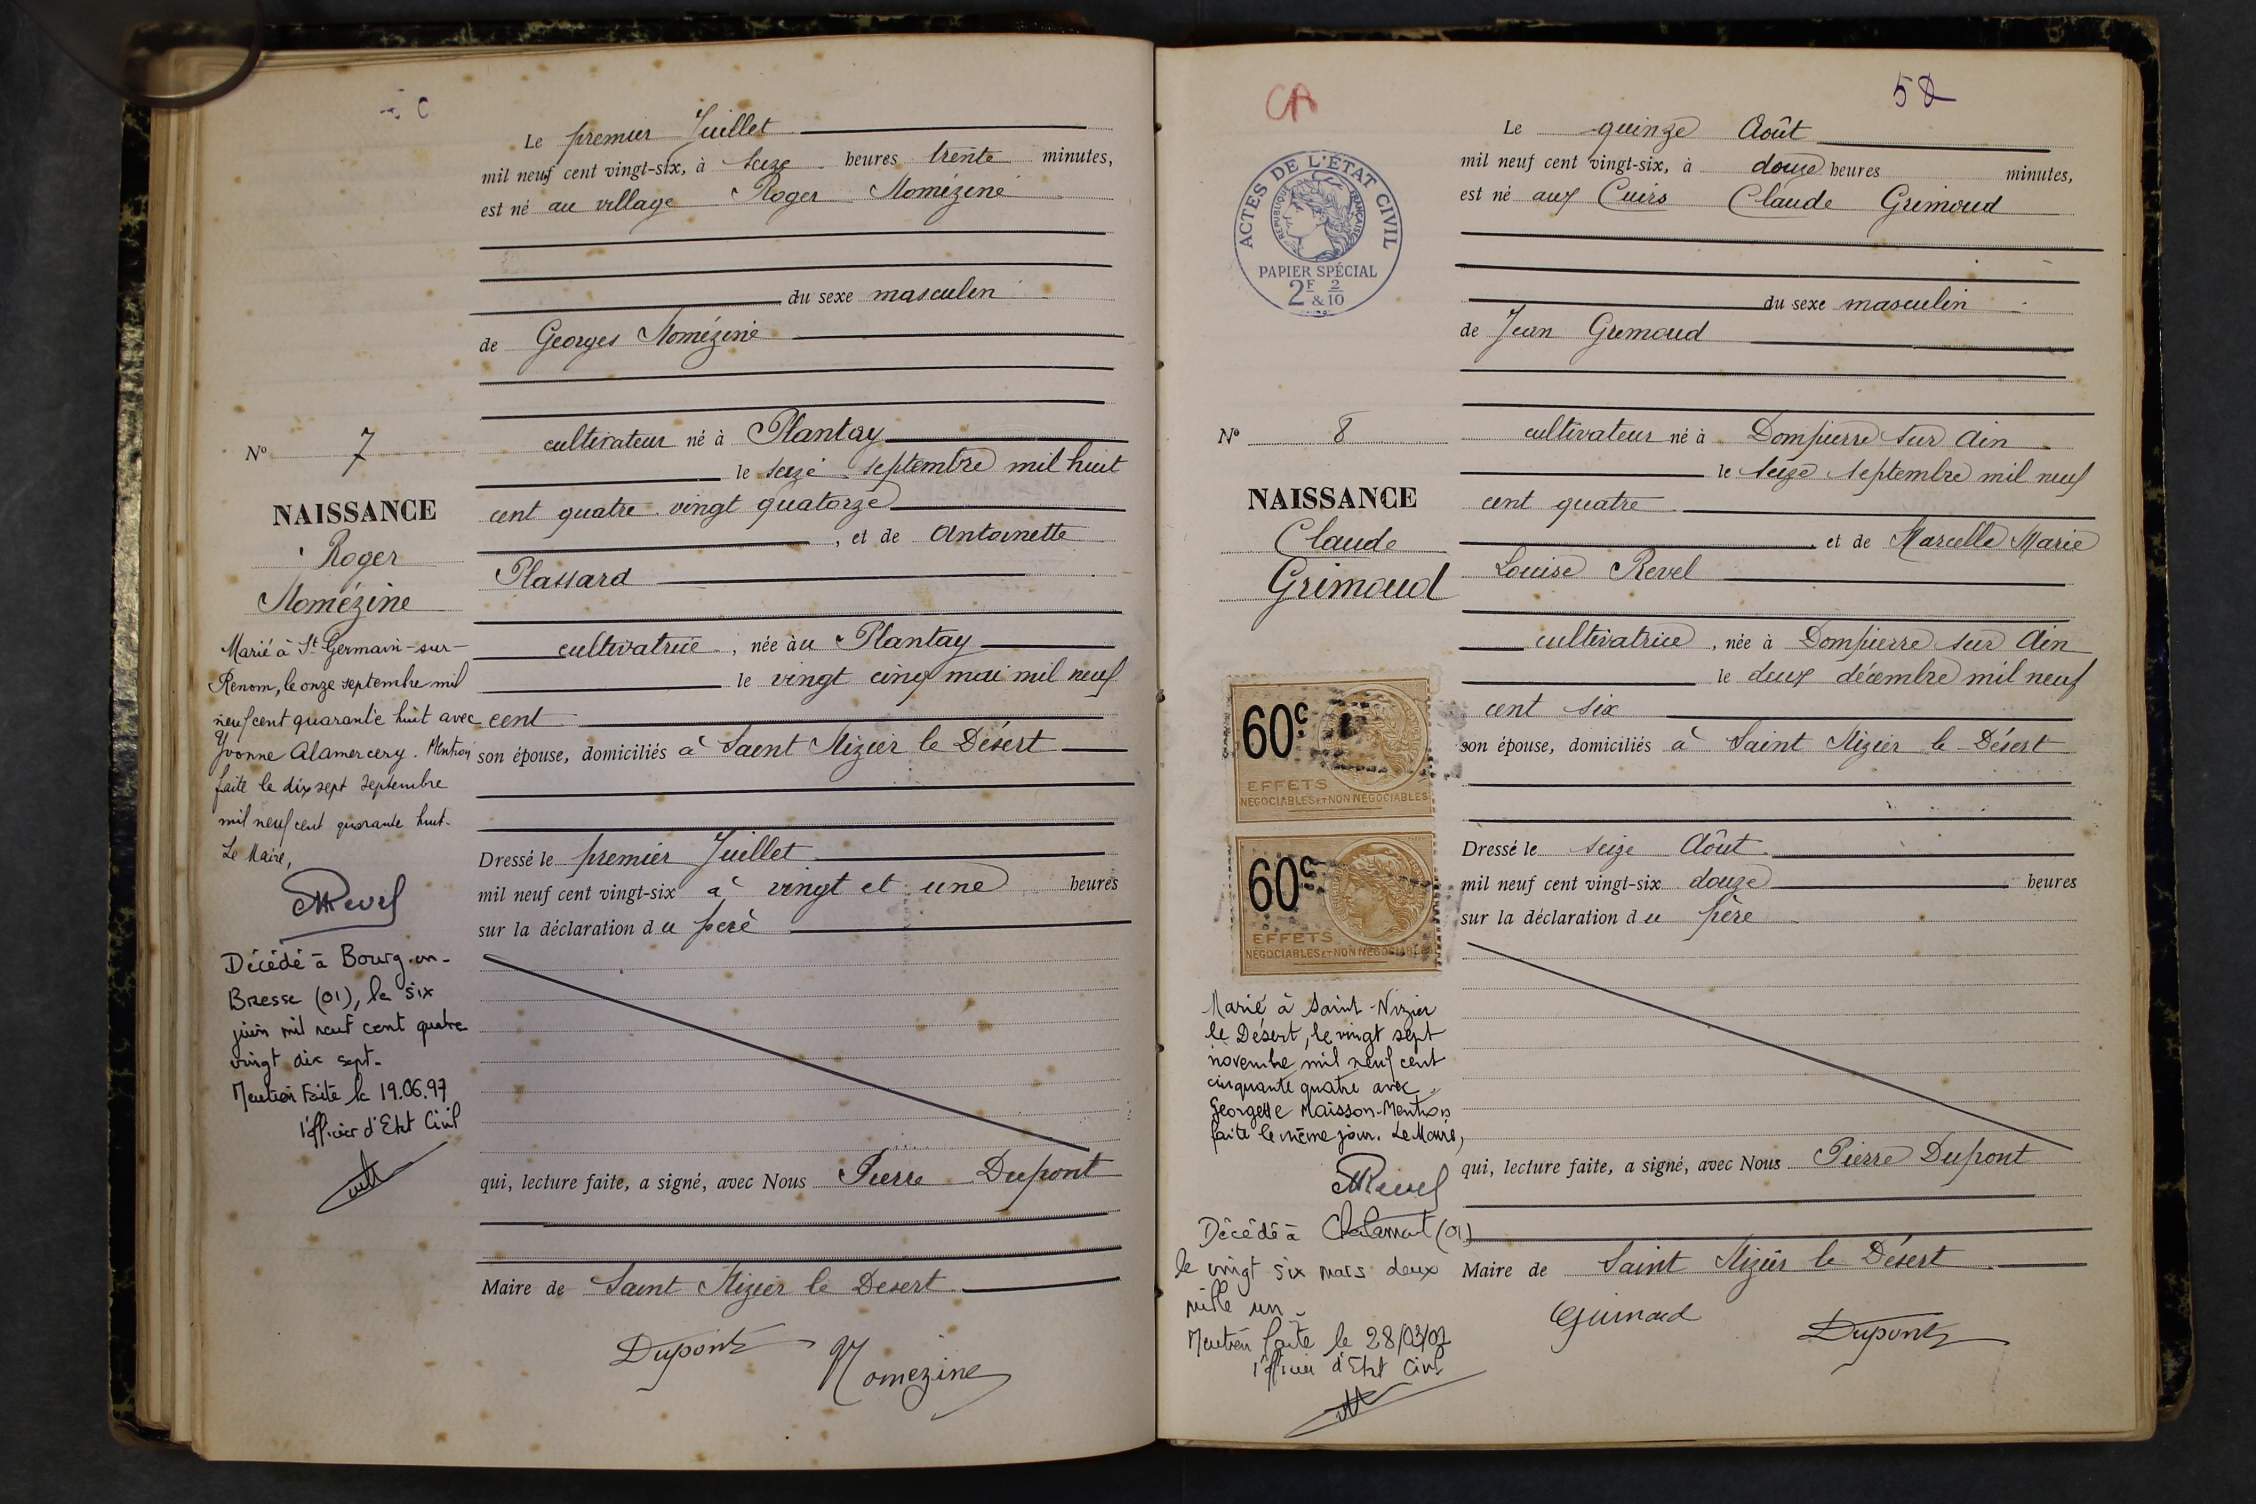 Le premier Juillet
mil neuf cent vingt-six, à seize heures trente minutes,
est né au village Roger Nomézine
du sexe masculin
de Georges Nomézine
cultivateur né à Plantay
le seize septembre mil huit
cent quatre vingt quatorze
, et de Antoinette
Plassard
cultivatrice, née au Plantay
le vingt cinq mai mil neuf
cent
son épouse, domiciliés à Saint Nizier le Désert
Dressé le premier Juillet
mil neuf cent vingt-six à vingt et une heures
sur la déclaration du père
qui, lecture faite, a signé, avec Nous Pierre Dupont
Maire de Saint Nizier le Desert
Dupont Nomezine
N° 7
NAISSANCE
Roger
Nomézine
Marié à St Germain-sur-
Renom, le onze septembre mil
neuf cent quarante huit avec
Yvonne Alamercery. Mention
faite le dix sept septembre
mil neuf cent quarante huit.
Le Maire,
Revel
Décédé à Bourg-en-
Bresse (01), le six
juin mil neuf cent quatre
vingt dix sept.
Mention faite le 19.06.97
l'officier d'Etat Civil
CA
52
ACTES DE L'ÉTAT CIVIL
RÉPUBLIQUE FRANÇAISE
PAPIER SPÉCIAL
2F & 2/10
Le quinze Août
mil neuf cent vingt-six, à douze heures minutes,
est né aux Cuirs Claude Grimoud
du sexe masculin
de Jean Grimoud
cultivateur né à Dompierre sur Ain
le seize septembre mil neuf
cent quatre
et de Marcelle Marie
Louise Revel
cultivatrice, née à Dompierre sur Ain
le deux décembre mil neuf
cent six
son épouse, domiciliés à Saint Nizier le Désert
Dressé le seize Août
mil neuf cent vingt-six douze heures
sur la déclaration du père
qui, lecture faite, a signé, avec Nous Pierre Dupont
Maire de Saint Nizier le Désert
Grimoud Dupont
N° 8
NAISSANCE
Claude
Grimoud
60c
EFFETS
NÉGOCIABLES ET NON NÉGOCIABLES
60c
EFFETS
NÉGOCIABLES ET NON NÉGOCIABLES
Marié à Saint-Nizier
le Désert, le vingt sept
novembre mil neuf cent
cinquante quatre avec
Georgette Maisson. Mention
faite le même jour. Le Maire,
Revel
Décédé à Chalamont (01)
le vingt six mars deux
mille un.
Mention faite le 28/03/01
l'officier d'Etat Civil